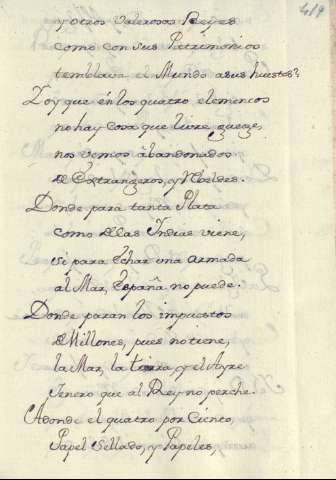 419
y otros valerosos Reyes
como con sus Patrimonios
temblava el Mundo a sus huestes?
Y oy que en los quatro elementos
no hay cosa que livre quede,
nos vemos abandonados
de Extrangeros, y Rebeldes.
Donde para tanta Plata
como de las Indias viene,
si para Echar una armada
al Mar, España no puede.
Donde paran los impuestos
de Millones, pues no tiene,
la Mar, la tierra y el Ayre
Genero que al Rey no peche.
Adonde el quatro por Ciento,
Papel Sellado, y Papeles,